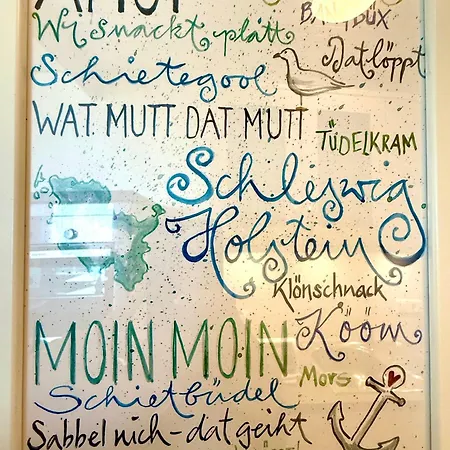 AHOI
BANGBÜX
Wi snackt platt
Dat löppt
Schietegool
WAT MUTT DAT MUTT
TÜDELKRAM
Schleswig
Holstein
Klönschnack
MOIN MOIN
Kööm
Mors
Schietbüdel
Sabbel nich-dat geiht